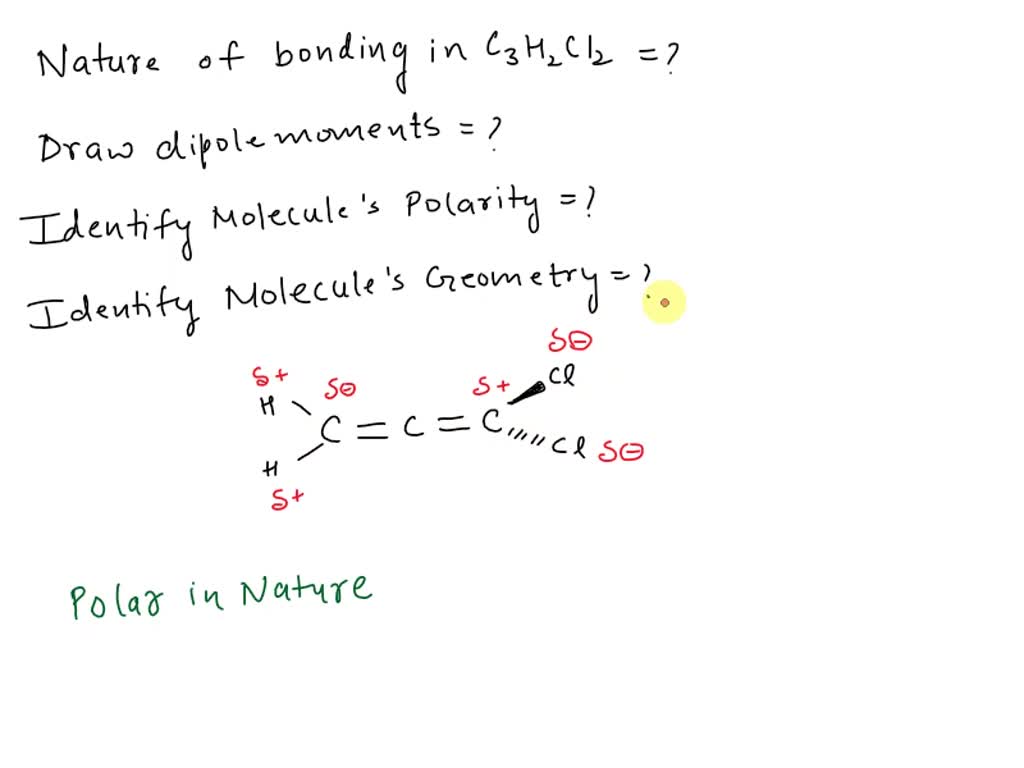 Nature of bonding in C₃H₂Cl₂ = ?
Draw dipole moments = ?
Identify Molecule's Polarity = ?
Identify Molecule's Geometry = ?
δ⊖
δ+ δ⊖ δ+ Cl
H
C = C = C
Cl δ⊖
H
δ+
Polar in Nature